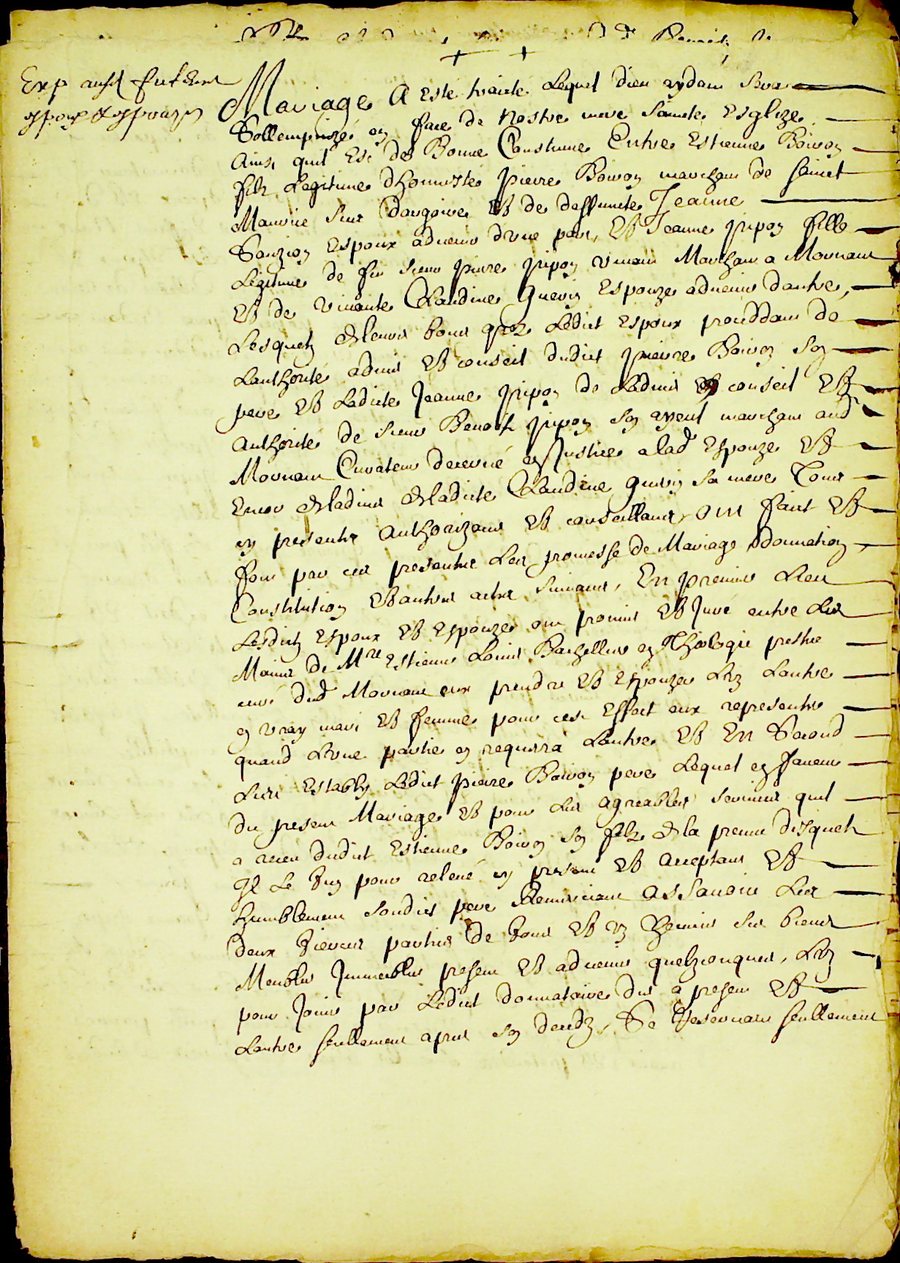 Exp ausd futture
espoux & espouze
Mariage A esté traicté Lequel dieu aydant Sera
Sollempnizé en face de Nostre mere Saincte Esglize
Ainsi quil Est de Bonne Coustume Entre Estienne Boiron
filz Legitime dhonneste pierre Boiron marchant de sainct
Maurice sur dargoire Et de deffuncte Jeanne
espoux advenir dune part, Et Jeanne pipon fille
Legitime de feu sieur pierre pipon vivant Marchant a Mornant
Et de vivante Claudine Guerin Espouze advenir dautre,
Lesquelz de leurs bons grez Ledict Espoux proceddant de
Lauthorité advis Et conseil dudict pierre Boiron son
pere Et Ladicte Jeanne pipon de Ladvis Et conseil Et
Authorité de sieur Benoist pipon son ayeul marchant aud
Mornant Curateur decerné en Justice a lad Espouze Et
Encor de ladvis de ladicte Claudine Guerin sa mere Tous
en presents Authorizant Et conseillant, ont faict Et
font par ces presentes Les promesse de Mariage donnation
Constitution Et autres actes suivant, En premier Lieu
Lesdictz Espoux Et Espouze ont promis Et Juré entre Les
Mains de Mre Estienne Bachellier en Theologie prestre
curé dud Mornant eux prendre Et Espouzer Lun Lautre
en vray mary Et femme pour cest Effect eux representer
quand Lune partie en requerra Lautre Et En Second
Lieu Estably Ledict pierre Boiron pere Lequel en faveur
du present Mariage Et pour Les agreables services quil
a receu dudict Estienne Boiron son filz de la preuve desquelz
Il Le pour relevé en present Et acceptant Et
humblement sondict pere Remerciant Assavoir Les
deux tierces parties de tous Et un chacuns ses biens
Meubles Immeubles present Et advenir quelzconques, Lun
pour Jouir par Ledict donnataire dez a present Et
Lautre seullement apres son decedz, Se Reservant seullement